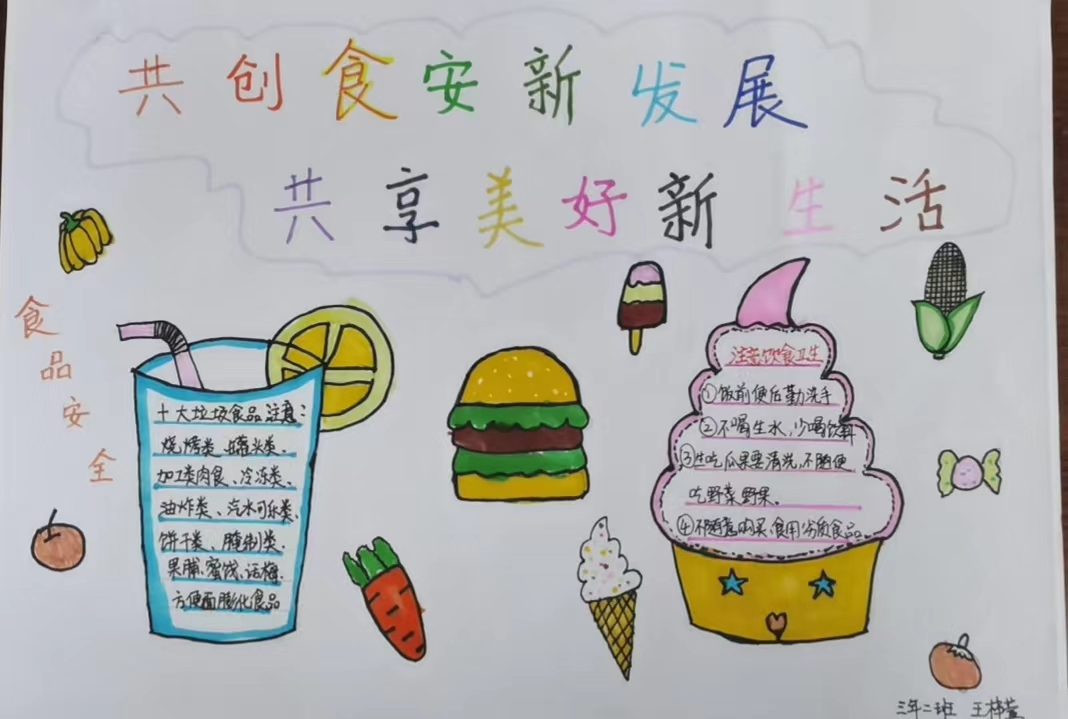 共创食安新发展
共享美好新生活
食品安全
十大垃圾食品注意:
烧烤类、罐头类、
加工类肉食、冷冻类、
油炸类、汽水可乐类、
饼干类、腌制类、
果脯、蜜饯、话梅、
方便面膨化食品
注意饮食卫生
①饭前便后勤洗手
②不喝生水,少喝饮料
③生吃瓜果要清洗,不随便
吃野菜野果、
④不随意购买、食用劣质食品。
三年二班 王梓萱